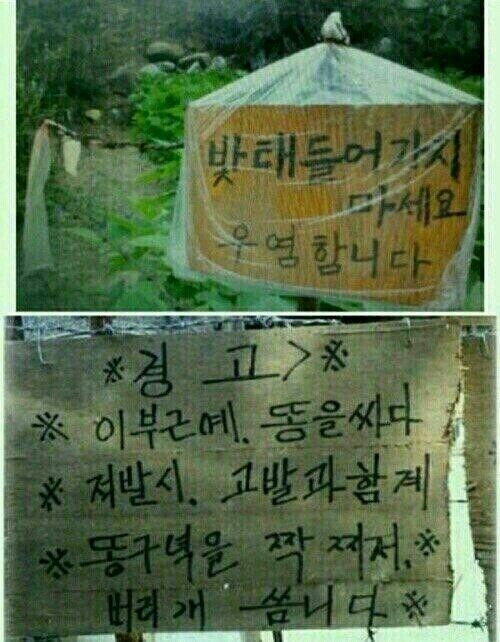 밧태들어가시
마세요
우염함니다
※경고>※
※ 이부근에. 똥을싸다
※ 저발시. 고발과함게
※똥구녁을 짝 찌저.※
버리개 씀니다※